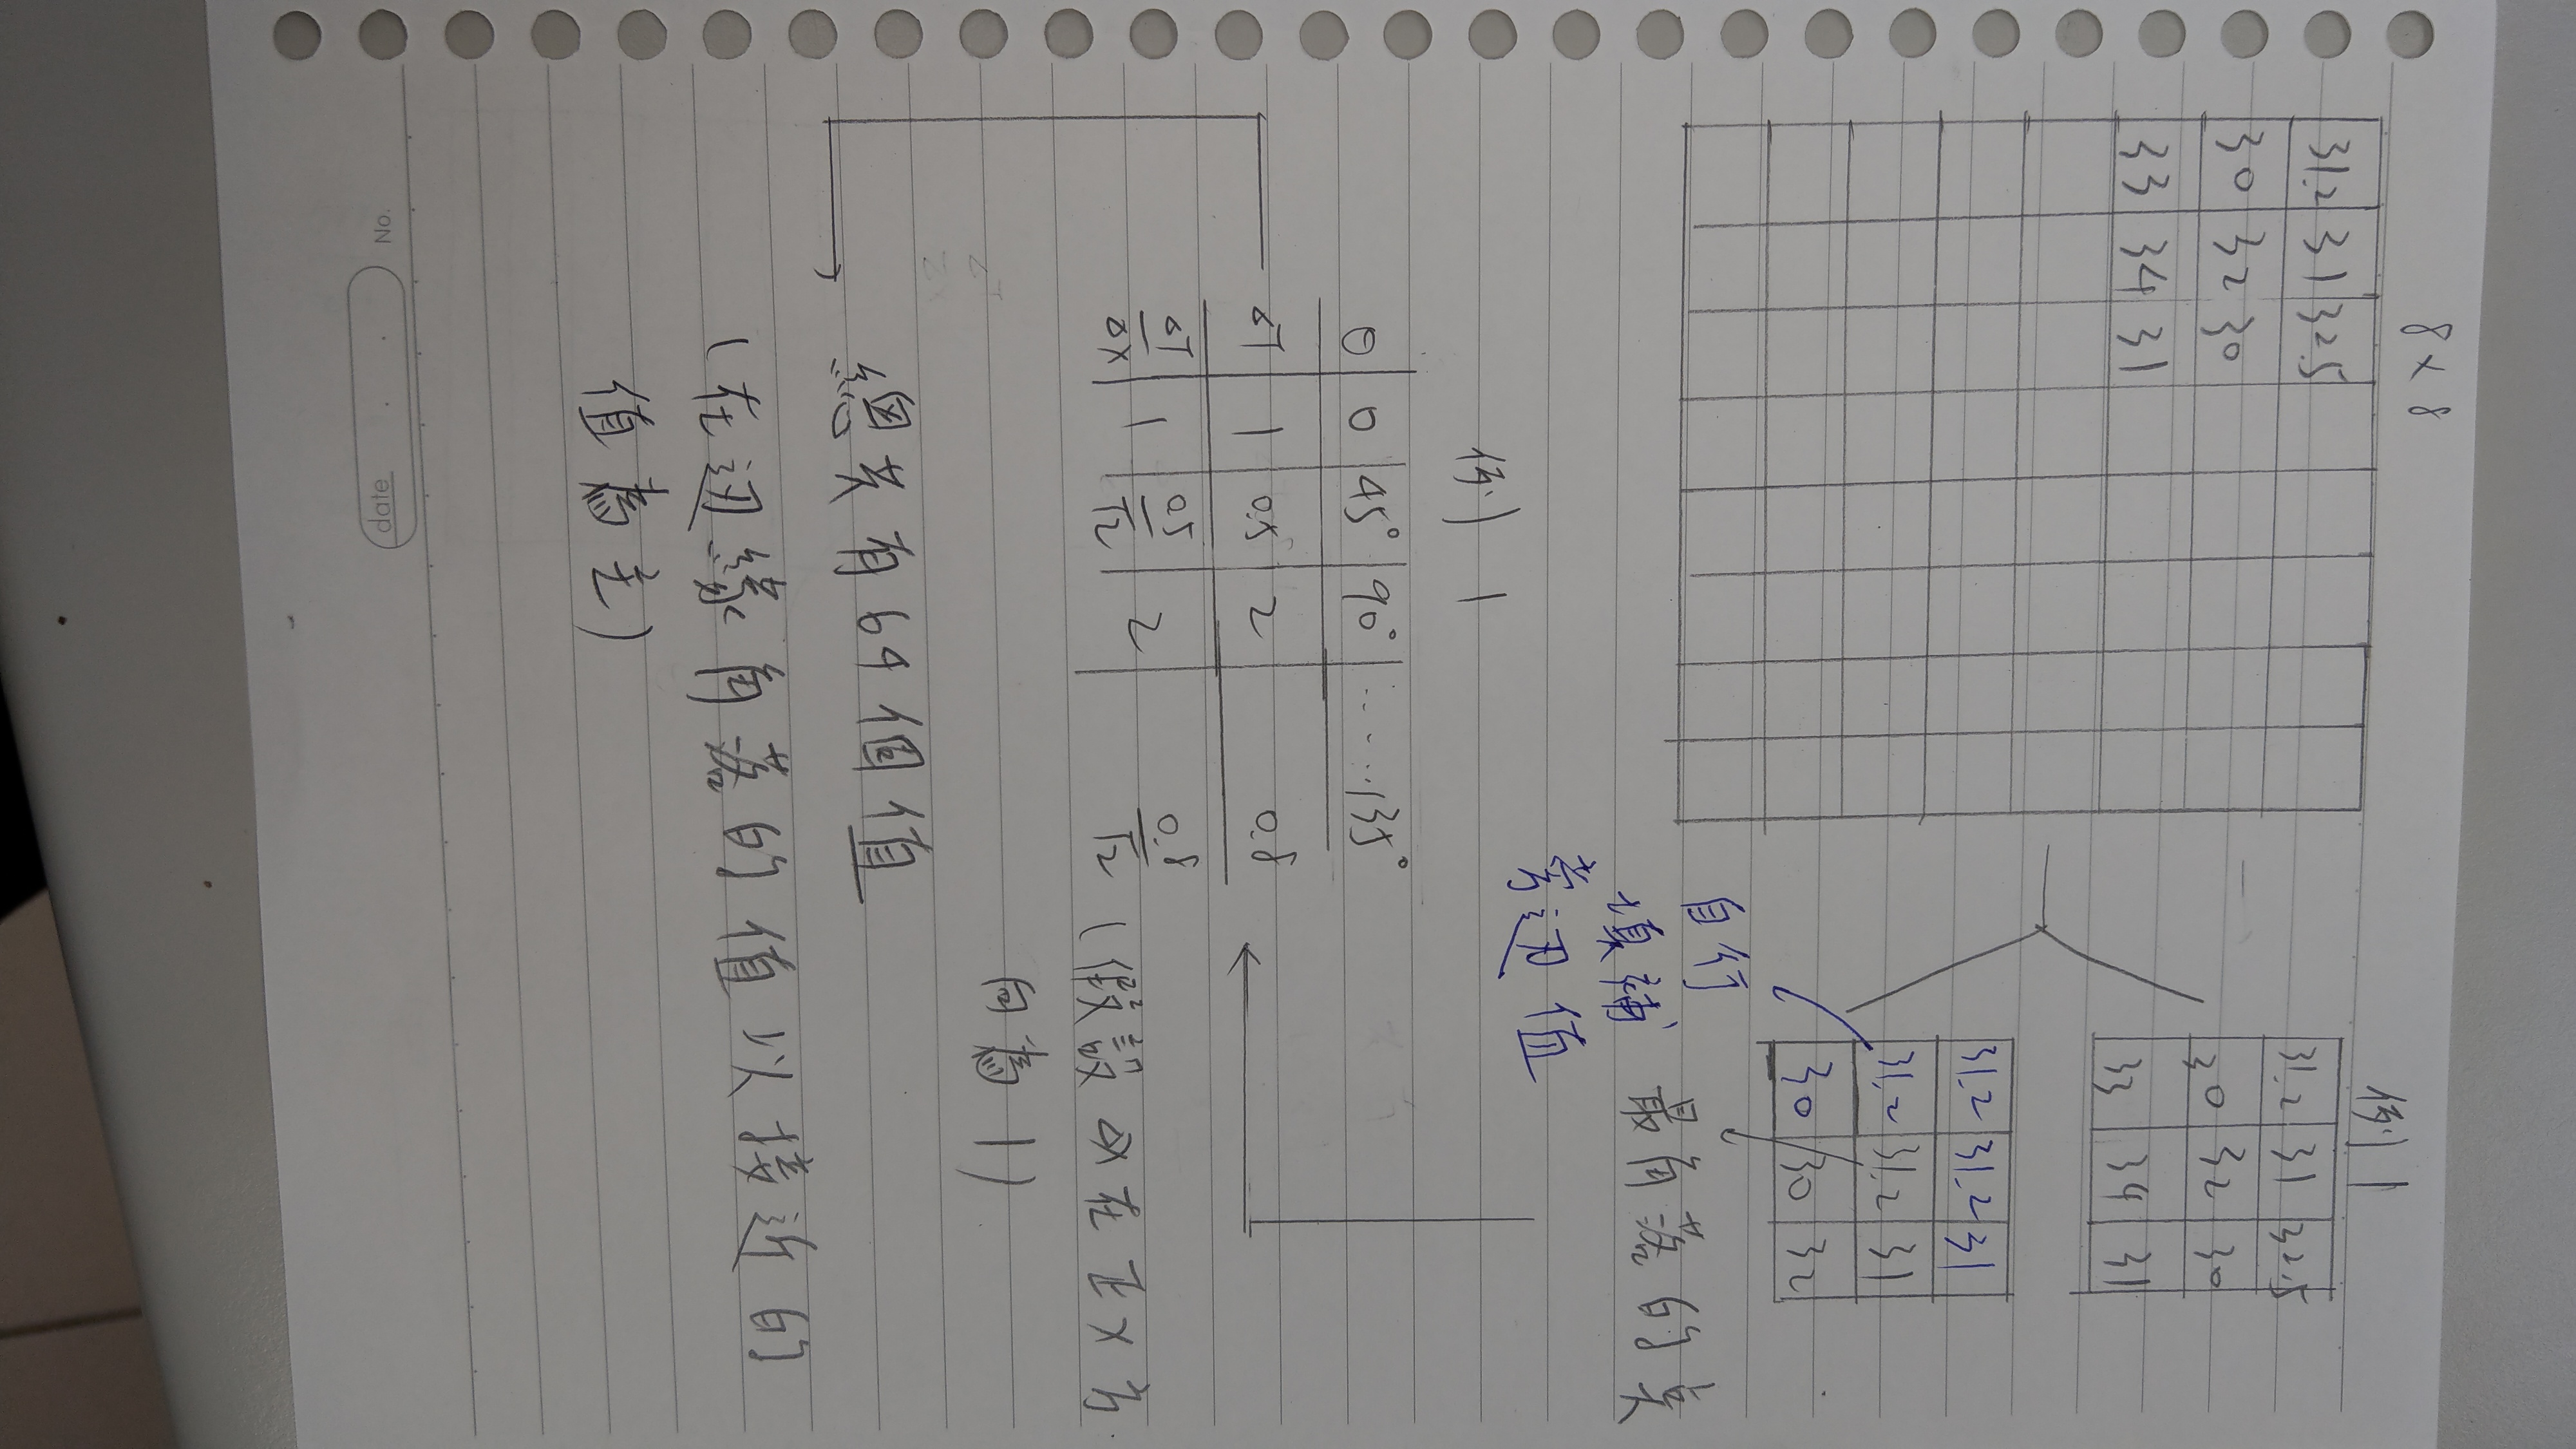 8×8
31.2 31 32.5
30 32 30
33 34 31
例1
31.2 31 32.5
30 32 30
33 34 31
31.2 31.2 31
31.2 31.2 31
30 30 32
自行
填補
旁邊值
最角落的
例 1
θ 0 45° 90° ...... 135°
δT 1 0.5 2 0.8
δT/δX 1 0.5/√2 2 0.8/√2 (假設 ΔX在正X方
向為1)
總共有64個值
(在邊緣角落的值以接近的
值為主)
No.
date